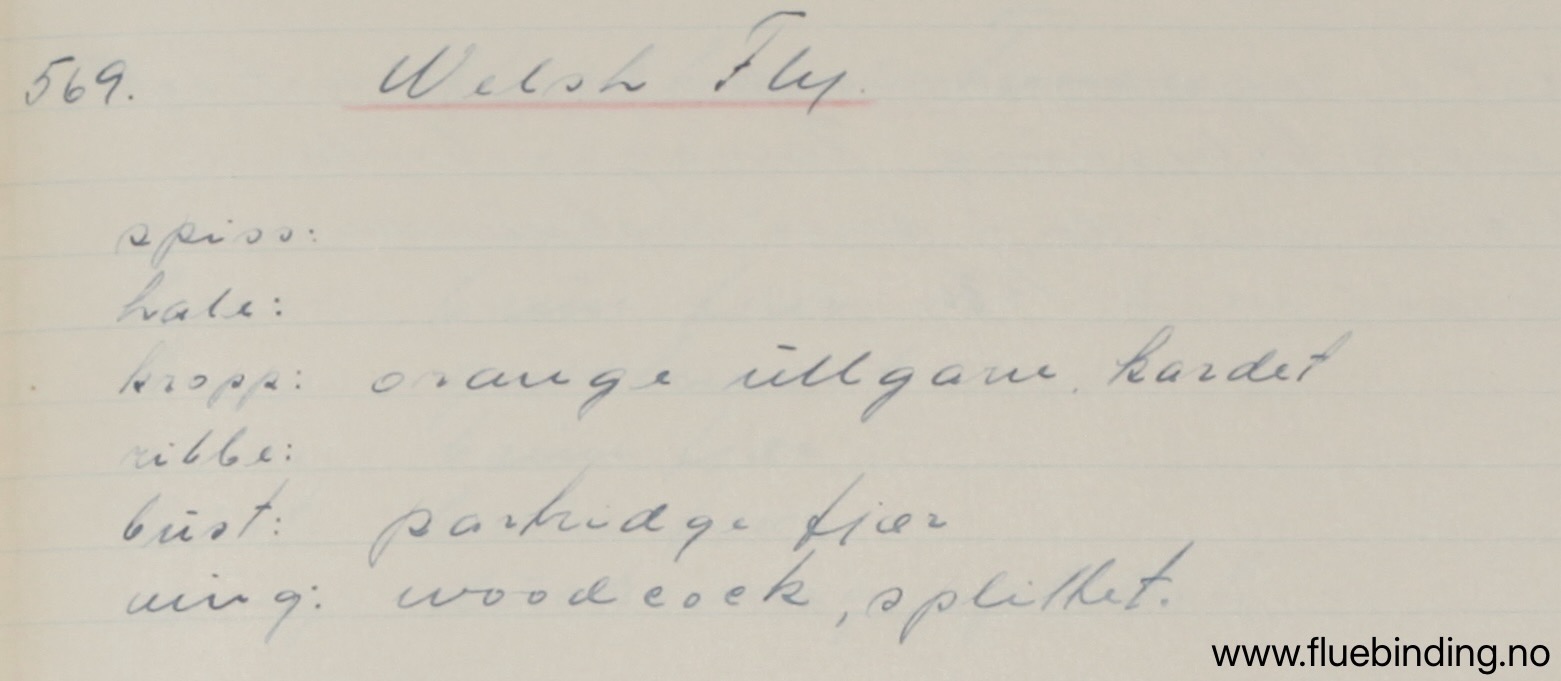 569. Welsh Fly.
spiss:
hale:
kropp: orange ullgarn, kardet
ribbe:
bust: partridge fjær
ving: woodcock, splittet.
www.fluebinding.no